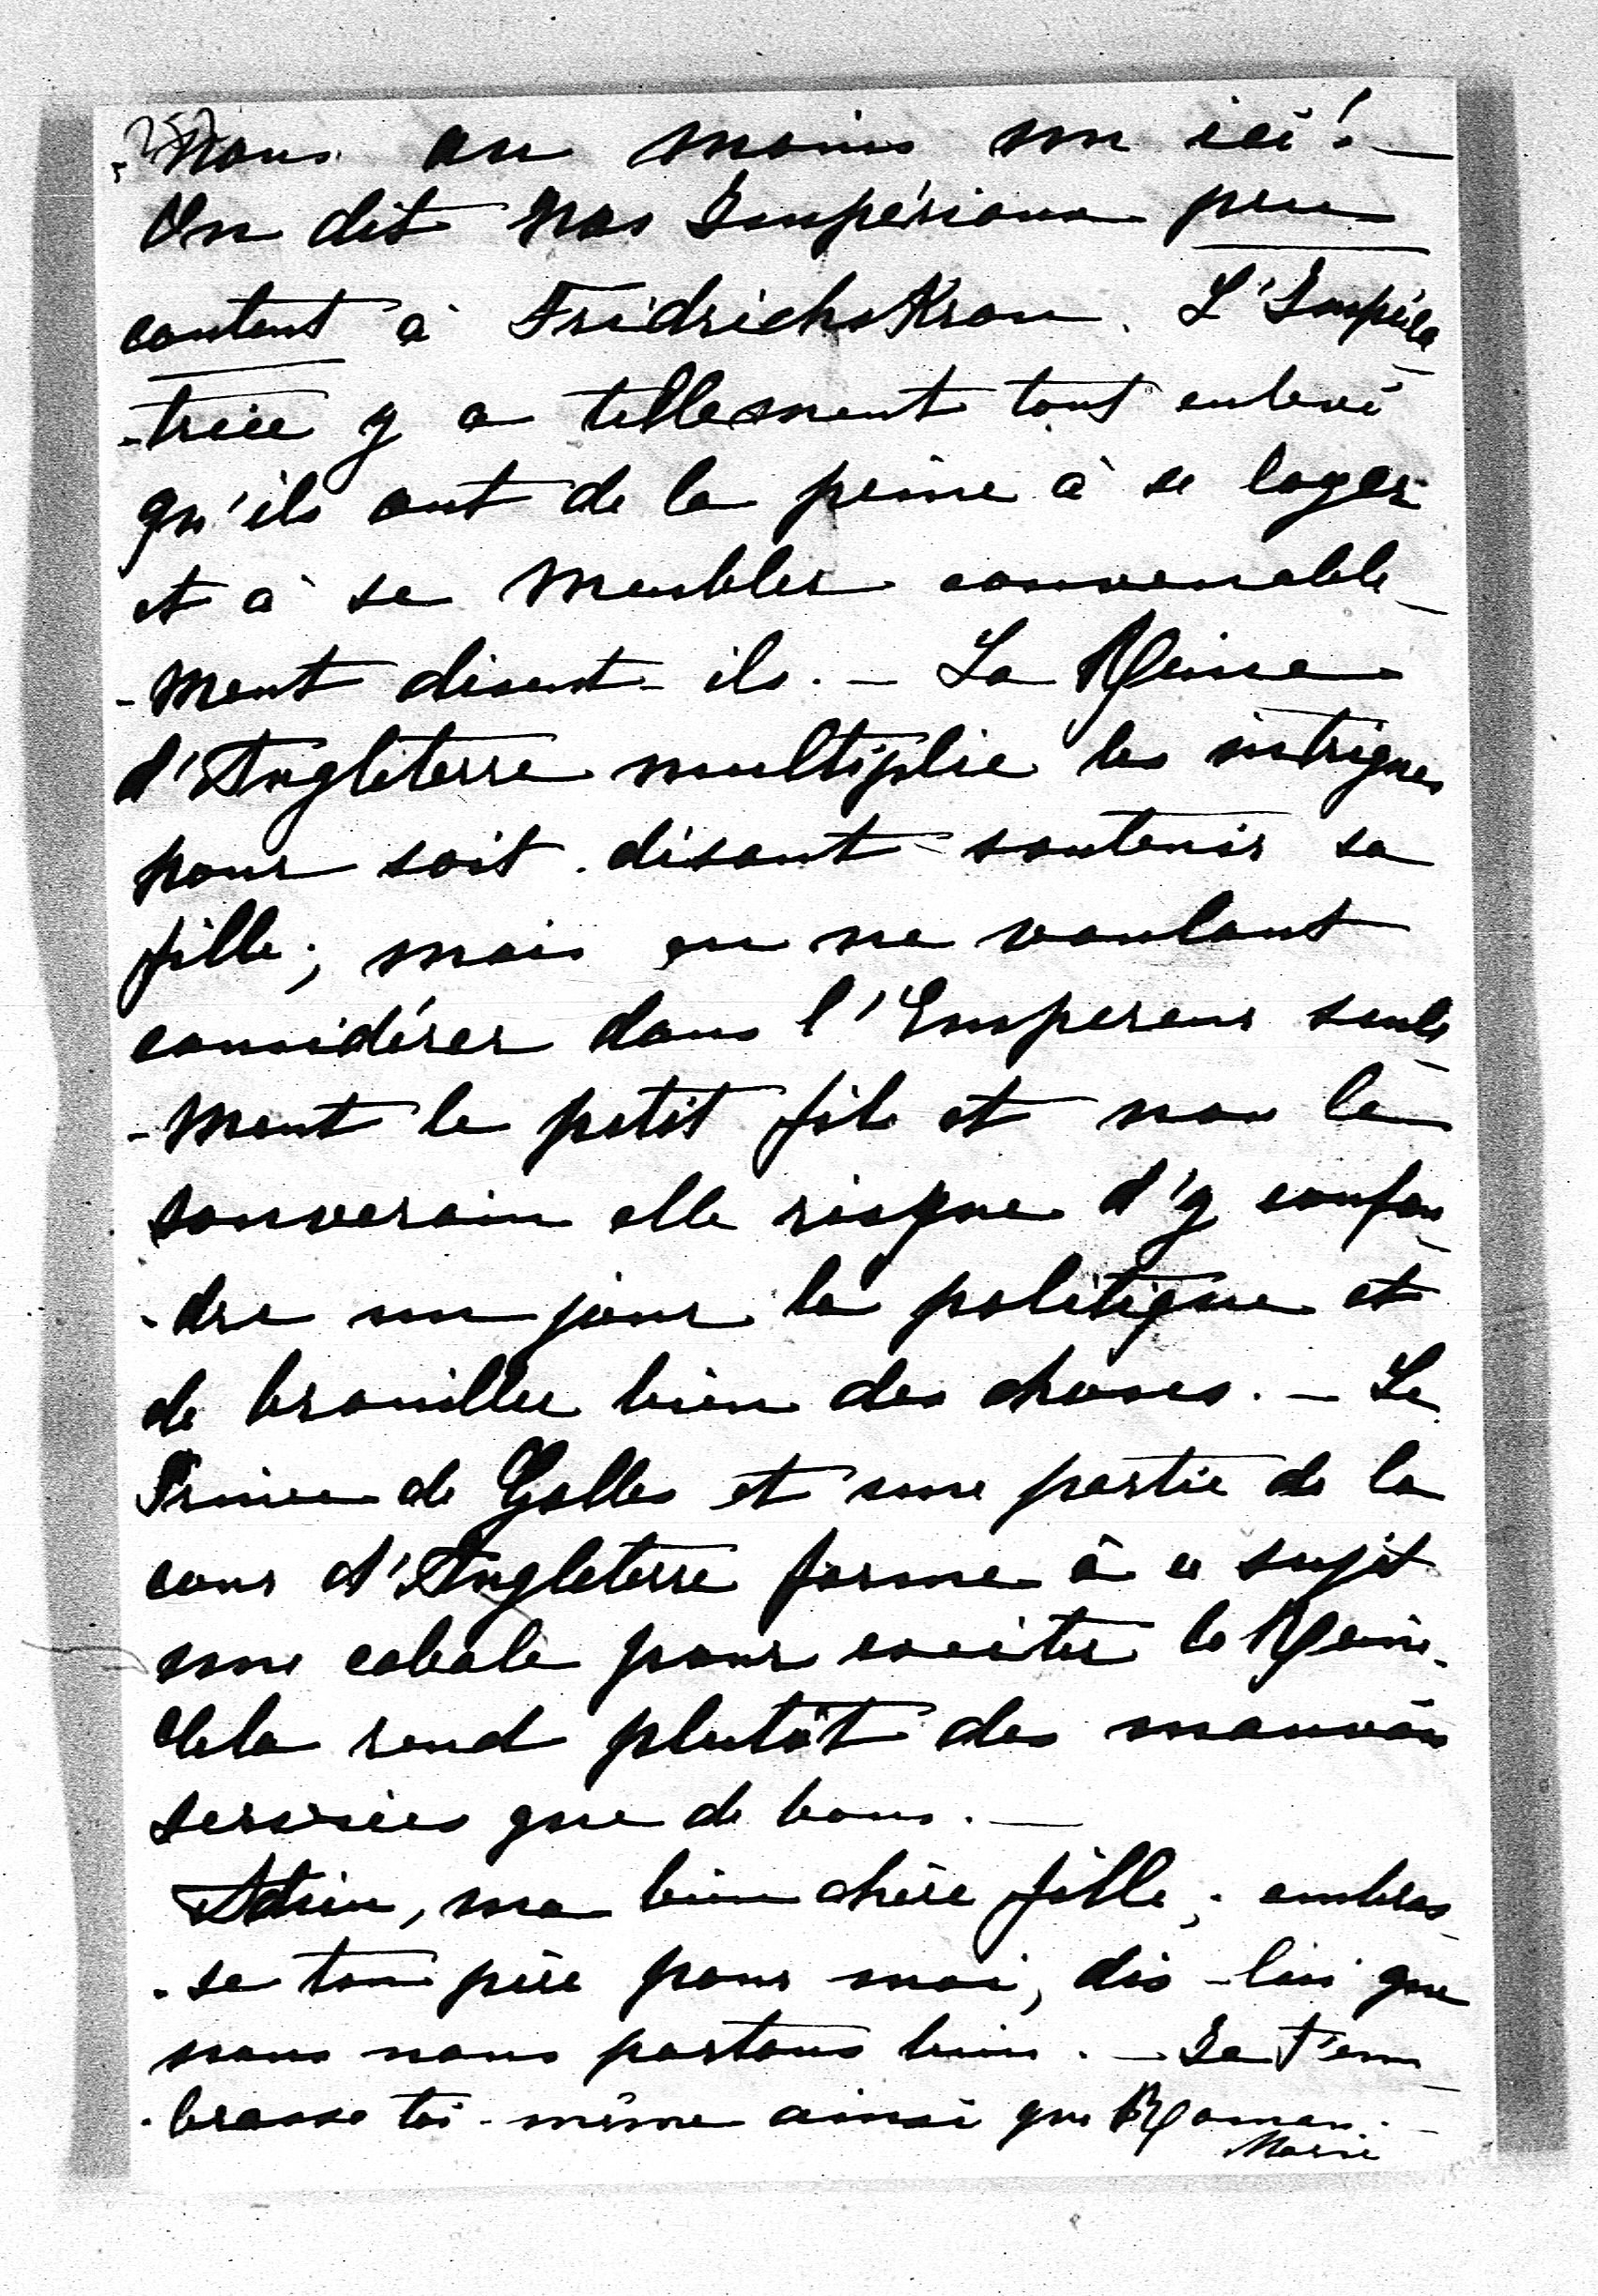 nous au moins un ici! —
On dit nos Impériaux peu
content à FridrichsKron. L'Impéra
-trice y a tellement tout enlevé
qu'ils ont de la peine à se loger
et à se meubler convenable
-ment disent-ils. — La Reine
d'Angleterre multiplie les intrigues
pour soit-disant soutenir sa
fille; mais en ne voulant
considérer dans l'Empereur seule
-ment le petit fils et non le
souverain elle risque d'y confon
-dre un jour la politique et
de brouiller bien des choses. — Le
Prince de Galles et une partie de la
cour d'Angleterre forme à ce sujet
une cabale pour exciter la Reine.
Cela rend plutôt des mauvais
services que de bons. —
Adieu, ma bien chère fille; embras
-se ton père pour moi, dis-lui que
nous nous portons bien. — Je t'em
-brasse toi-même ainsi que Roman.
Marie